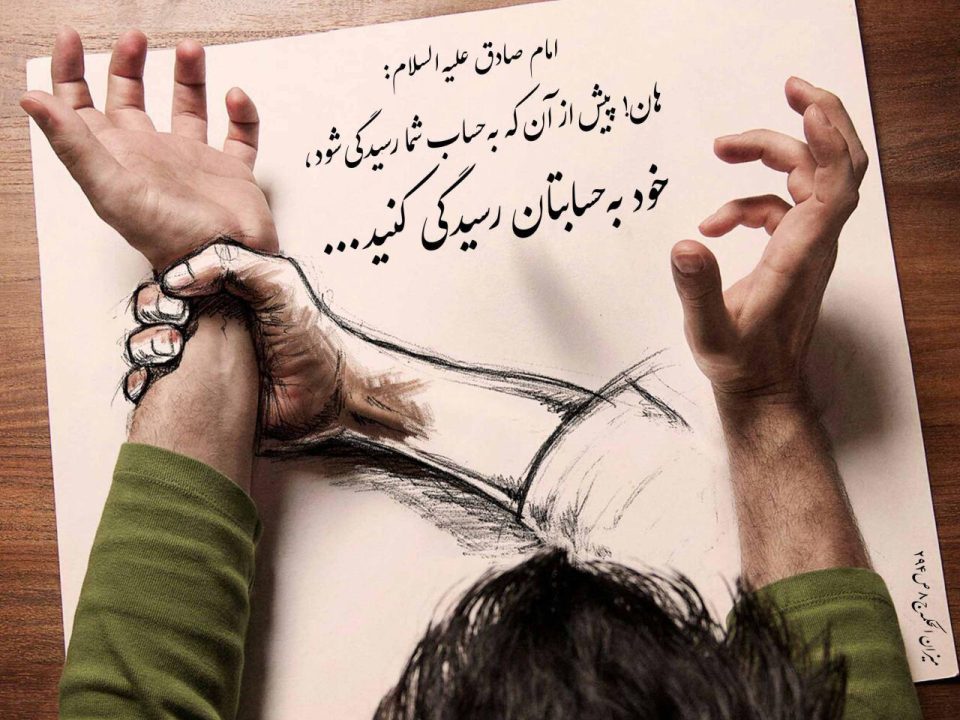 امام صادق علیه السلام:
هان! پیش از آن که به حساب شما رسیدگی شود،
خود به حسابتان رسیدگی کنید...
میزان الحکمه ج ۸ ص ۲۹۴